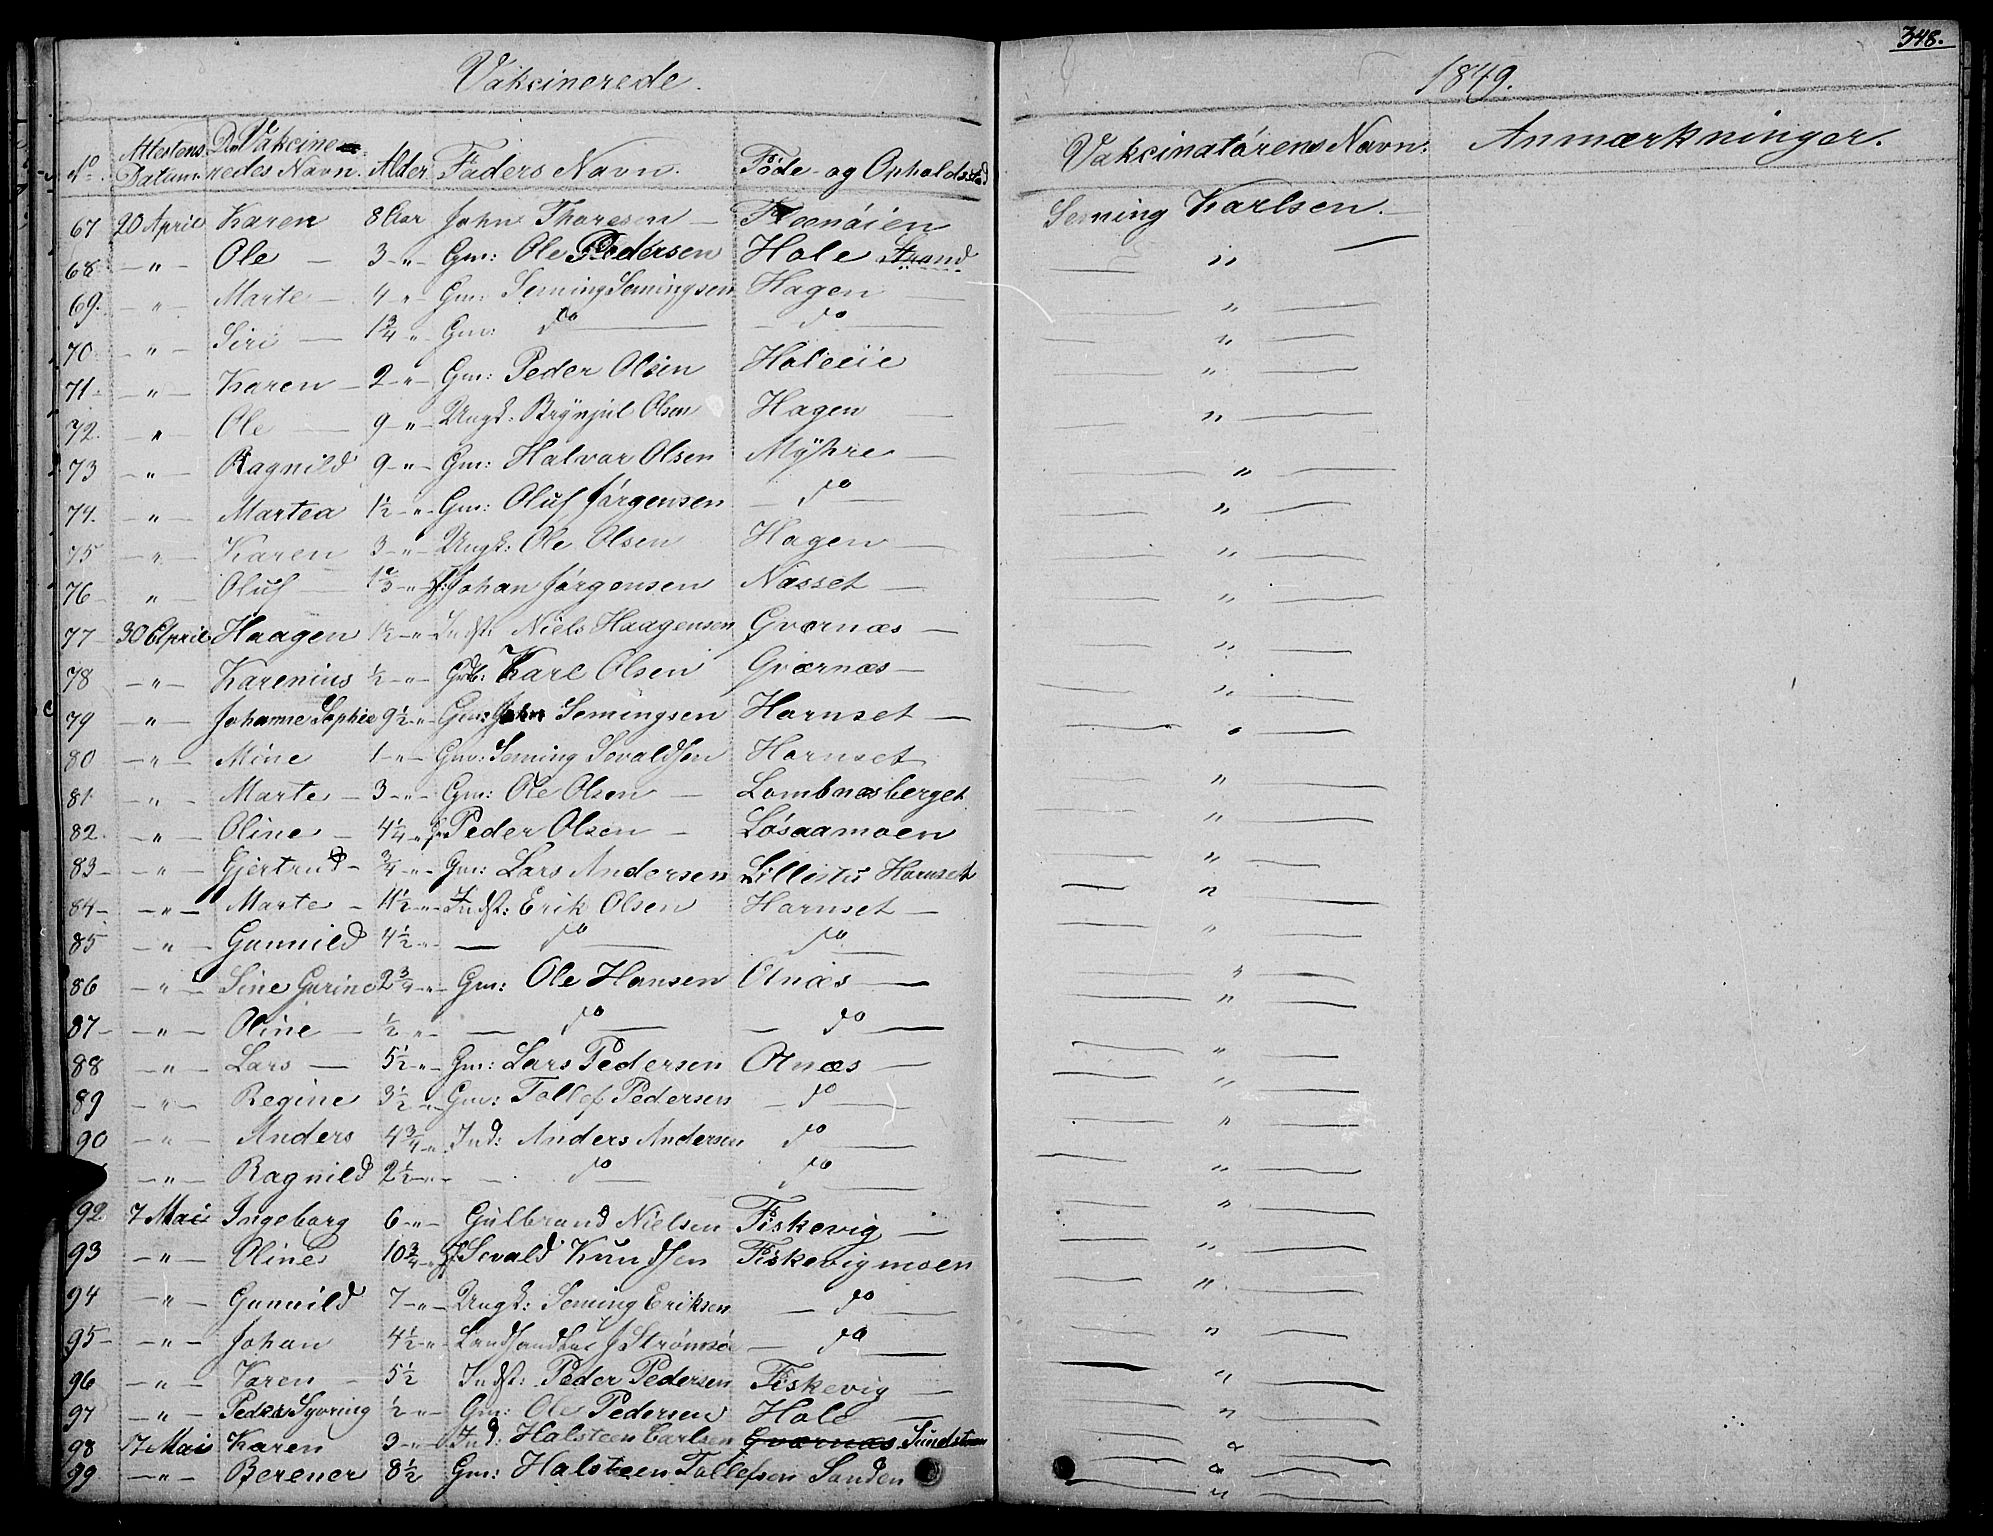 348.
Vakcinerede.
1849.
No. Attestens Datum. De Vakcineredes Navn. Alder Faders Navn. Føde- og Opholdssted
Vakcinatørens Navn. Anmærkninger.
67 20 April Karen 8 Aar John Thoresen — Floenøien Seming Karlsen. —
68 — " — Ole — 3 — " — Gm: Ole Pedersen Hole Strand — " —
69. — " — Marte — 4 " — Gm: Seming Semingsen Hagen — — " —
70 — " — Siri — 1 3/4 " — Gm: do — — do — — " —
71 — " — Karen — 2 — " — Gm: Peder Olsen Holeeie — " —
72. — " — Ole — 9 — " — Ungk: Brynjul Olsen Hagen — — " —
73 — " — Ragnild 9 — " — Gm: Halvor Olsen Myhre — — " —
74. — " — Martea 1 1/2 — " — Gm: Oluf Jørgensen — do — — " —
75 — " — Karen 3 — " — Ungk: Ole Olsen Hagen — — " —
76 — " — Oluf — Johan Jørgensen Næsset — — " —
77 — 30 April Haagen 1 1/2 — " — Indst: Niels Haagensen Gværnæs — — " —
78 — " — Karenius 1/2 — " — Grdb: Karl Olsen Gværnæs — — " —
79 — " — Johanne Sophie 9 1/2 — " — Gm: John Semingsen Hornset — — " —
80 — " — Mine 1 — " — Gm: Seming Sevaldsen Hornset — " —
81 — " — Marte — 3 — " — Gm: Ole Olsen — Lombnæsberget — " —
82. — " — Oline — 4 1/4 — " Peder Olsen — Løsaamoen — " —
83 — — " — Gjertrud — 3/4 — " — Gm: Lars Andersen Lillestu Hornset — " —
84 — — " — Marte — 11 1/2 — " — Indst: Erik Olsen Hornset — — " —
85 — " — Gunnild 4 1/2 — " — — do — do — — " —
86 — " — Sine Gurine 2 3/4 — " — Gm: Ole Hansen Otnæs — — " —
87 — — " — Oline — 1/2 — " — — do — — do — — " —
88 — " — Lars — 5 1/2 — " — Gm: Lars Pedersen Otnæs — — " —
89 — " — Regine 3 1/2 — " — Gm: Tollef Pedersen — do — — " —
90 — " — Anders 4 3/4 " Ind: Anders Andersen do — — " —
— " — Ragnild 2 1/2 — " — — do — do — — " —
92 7 Mai Ingeborg 6 — " — Gulbrand Nielsen Fiskevig — — " —
93 — " — Oline 10 3/4 — " Sevald Kundsen Fiskevigmoen — " —
94 — " — Gunnild 7 — " — Ungk: Seming Eriksen — do — — " —
95 — — " — Johan 4 1/2 — " — Landhandler J Strømsøe — do — — " —
96 — " — Karen — 5 1/2 Indst: Peder Pedersen Fiskevig — — " —
97 — " — Peder Syvring 1/2 — " — Gm: Ole Pedersen Hole — — " —
98 17 Mai Karen 9 — " — Ind: Halsteen Carlsen Gværnæs — " —
99 — " — Berener 8 1/2 Gm: Halsteen Tollefsen Sanden — " —